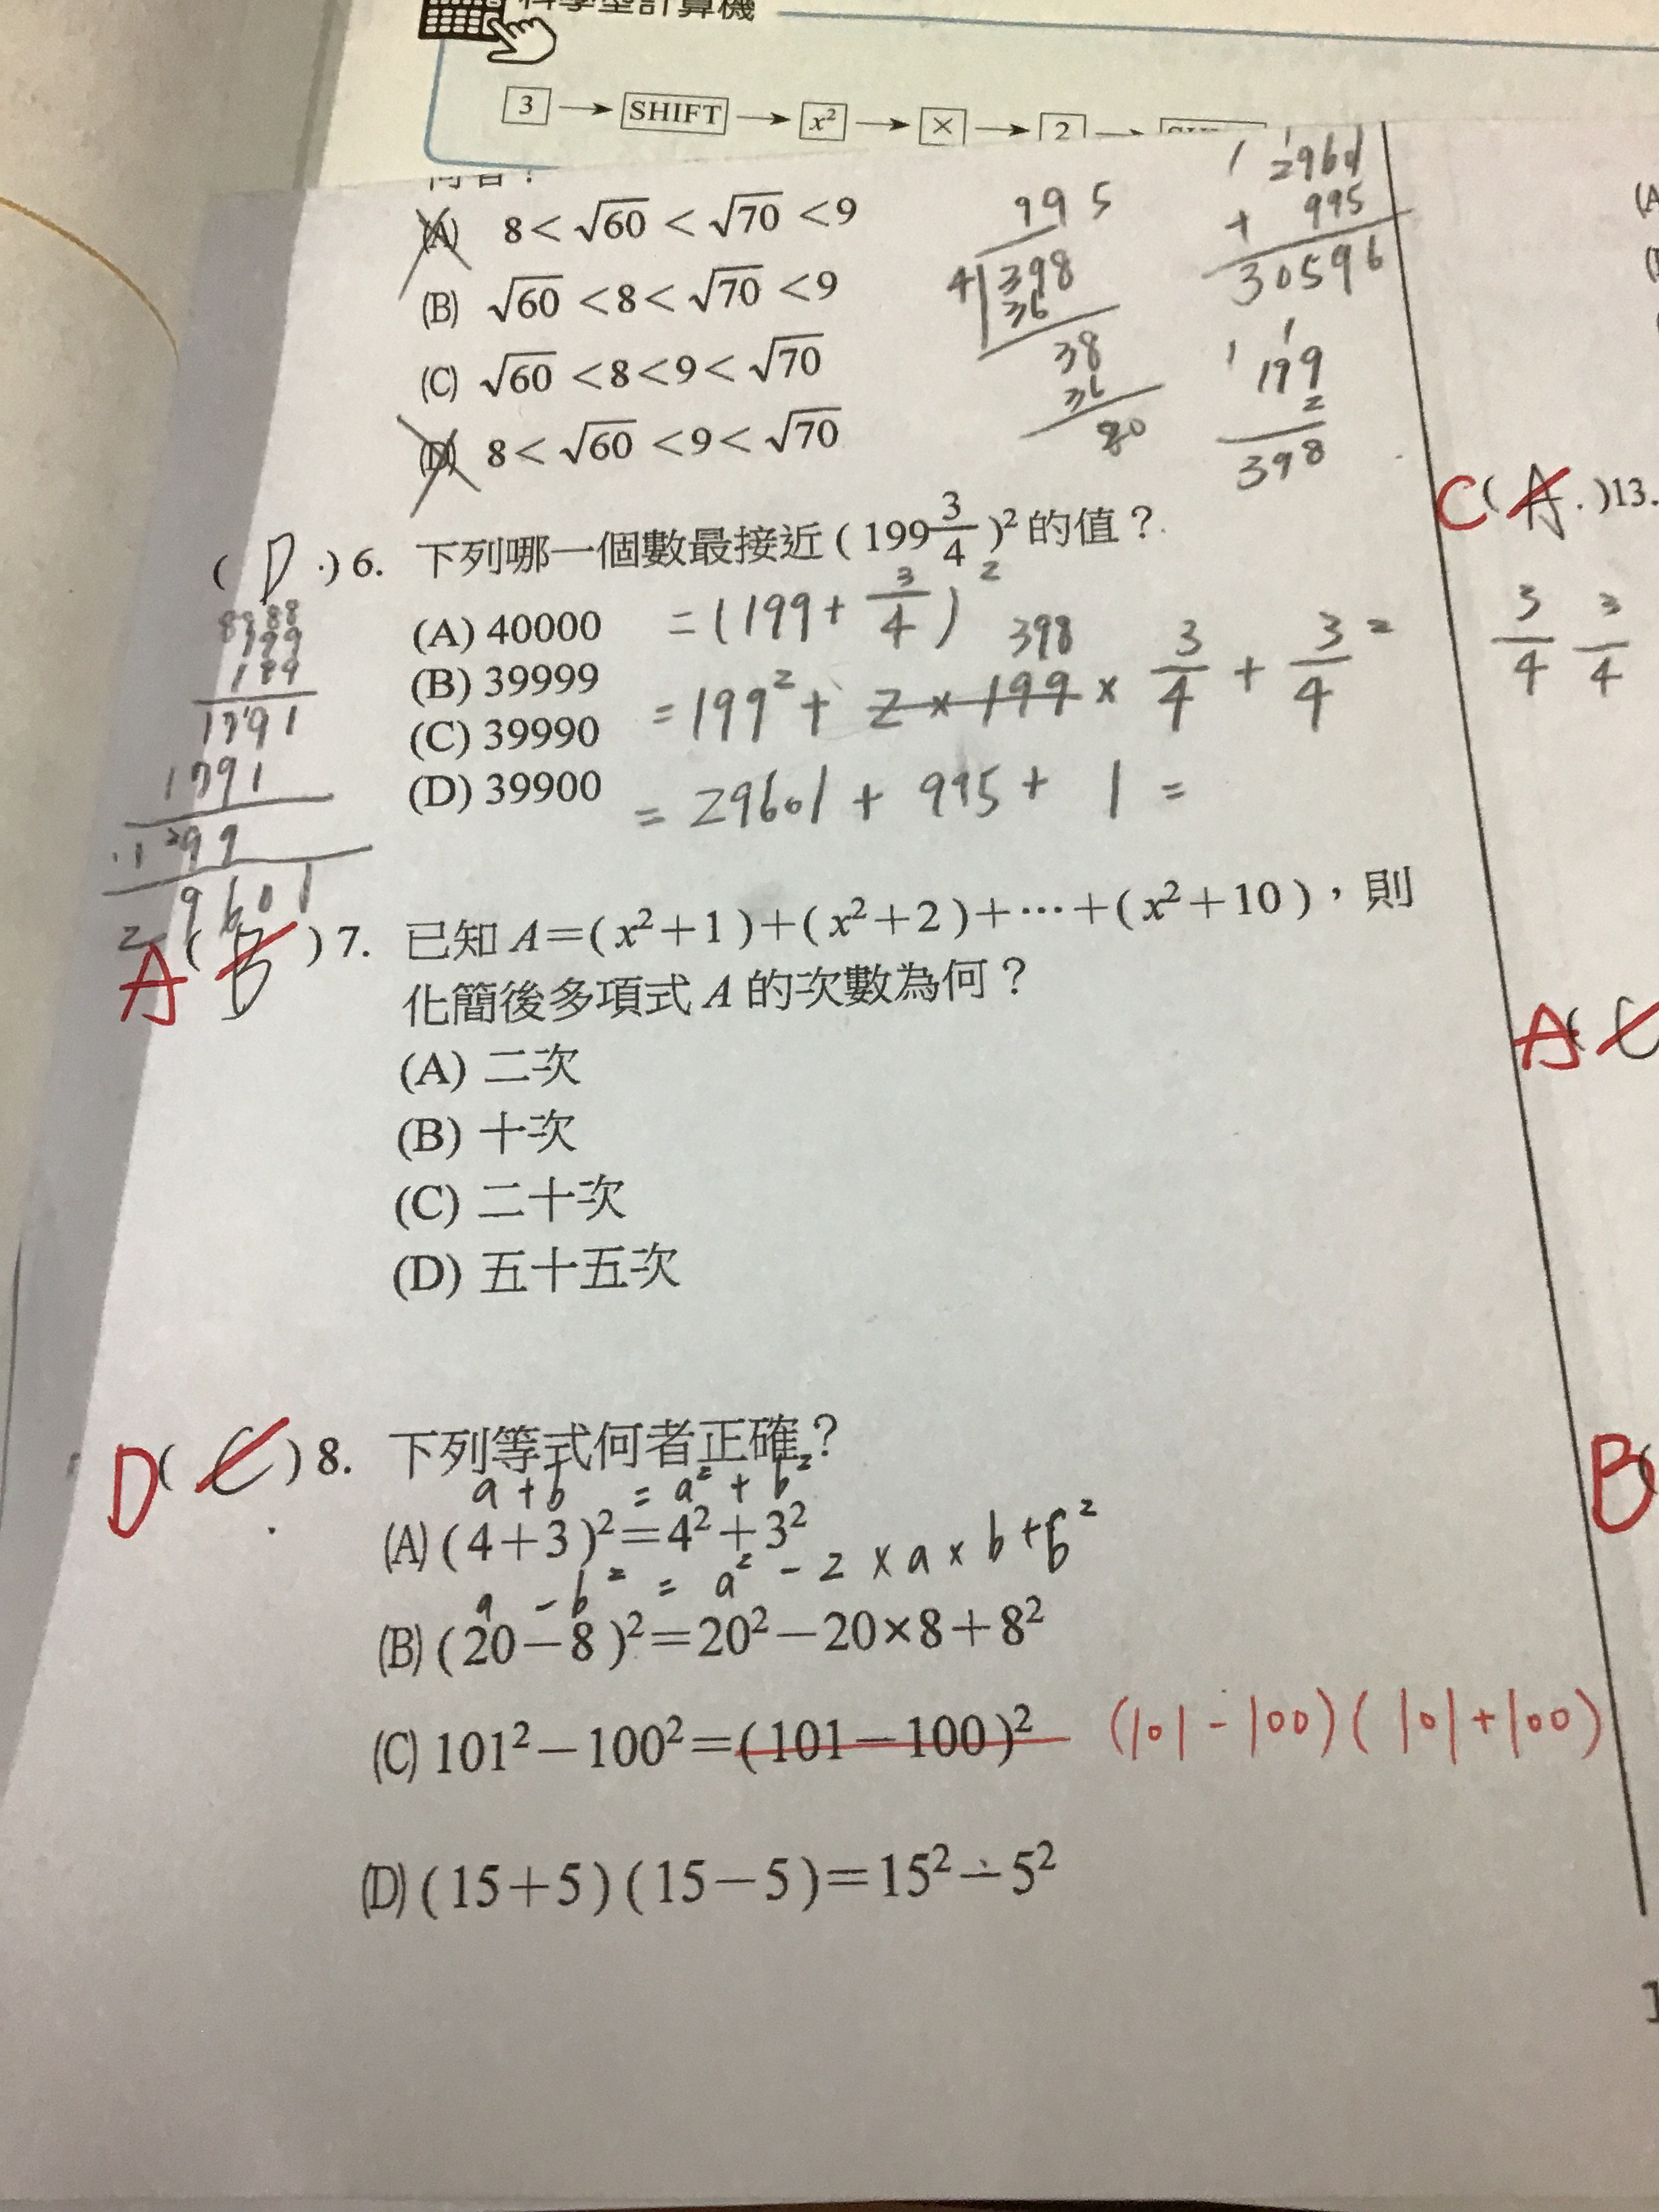 科學型計算機
3 → SHIFT → x² → × → 2 →
(A) 8<√60<√70<9
(B) √60<8<√70<9
(C) √60<8<9<√70
(D) 8<√60<9<√70
995
4 398
36
38
36
80
29601
+ 995
30596
199
2
398
( D ) 6. 下列哪一個數最接近 ( 199 3/4 )² 的值？
(A) 40000 = (199 + 3/4)²
(B) 39999
398
(C) 39990 = 199² + 2 × 199 × 3/4 + 3/4²
(D) 39900 = 29601 + 995 + 1 =
1791
1791
29601
A ( B ) 7. 已知 A=(x²+1)+(x²+2)+⋯+(x²+10)，則
化簡後多項式 A 的次數為何？
(A) 二次
(B) 十次
(C) 二十次
(D) 五十五次
D ( C ) 8. 下列等式何者正確？
a + b = a² + b²
(A) (4+3)²=4²+3²
a - b² = a² - 2 × a × b + b²
(B) (20−8)²=20²−20×8+8²
(C) 101²−100²=(101−100)² (101-100)(101+100)
(D) (15+5)(15−5)=15²÷5²
C ( A ) 13.
3/4 3/4
A ( C
B (